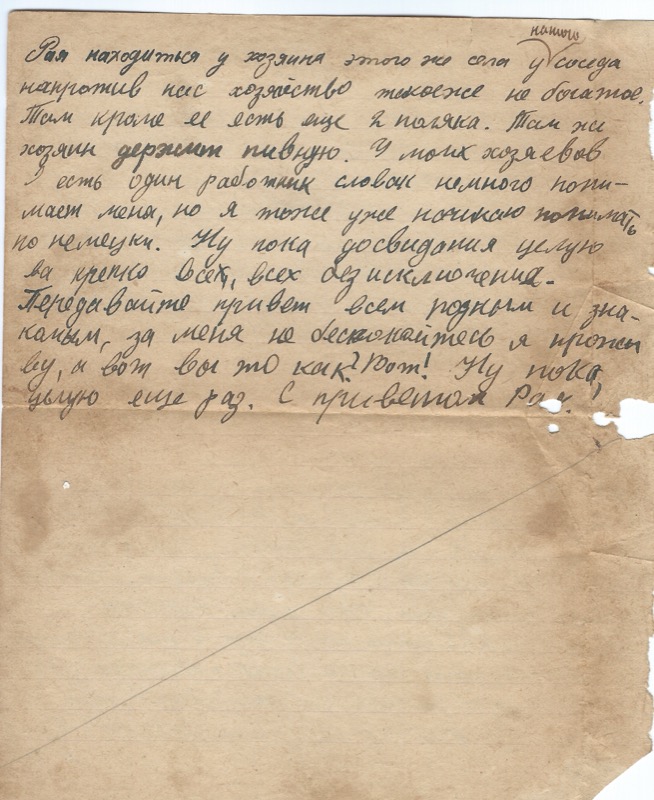 нашего
Рая находиться у хозяина этого же села у соседа
напротив нас хозяйство такоеже не богатое.
Там кроме ее есть еще 2 поляка. Там же
хозяин держит пивную. У моих хозяевов
есть один работник словак немного пони-
мает меня, но я тоже уже начинаю понимать
по немецки. Ну пока досвидания целую
ва крепко всех, всех без исключения.
Передавайте привет всем родным и зна-
комым, за меня не беспокайтесь я прожи
ву, а вот вы то как? Вот! Ну пока,
целую еще раз. С приветом